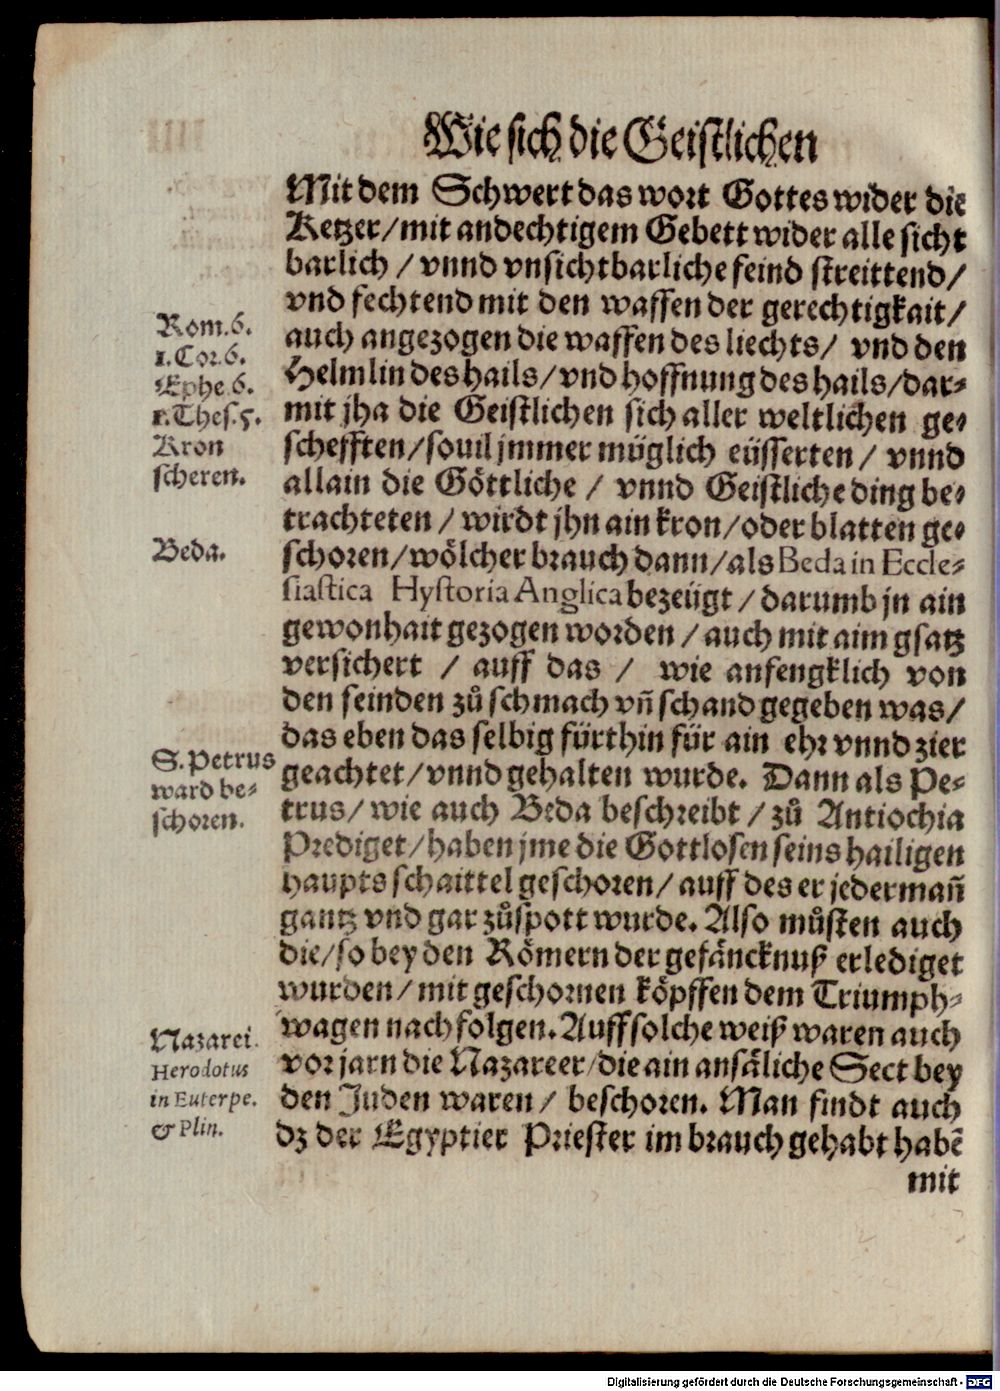 Wie sich die Geistlichen
Mit dem Schwert das wort Gottes wider die
Ketzer/mit andechtigem Gebett wider alle sicht
barlich / vnnd vnsichtbarliche feind streittend/
vnd fechtend mit den waffen der gerechtigkait/
auch angezogen die waffen des liechts/ vnd den
Helmlin des hails/vnd hoffnung des hails/dar⸗
mit jha die Geistlichen sich aller weltlichen ge⸗
schefften/souil jmmer müglich eüsserten / vnnd
allain die Göttliche / vnnd Geistliche ding be⸗
trachteten / wirdt jhn ain kron/oder blatten ge⸗
schoren/wölcher brauch dann/als Beda in Eccle⸗
siastica Hystoria Anglica bezeügt / darumb jn ain
gewonhait gezogen worden / auch mit aim gsatz
versichert / auff das / wie anfengklich von
den feinden zů schmach vñ schand gegeben was/
das eben das selbig fürthin für ain ehr vnnd zier
geachtet/vnnd gehalten wurde. Dann als Pe⸗
trus/ wie auch Beda beschreibt / zů Antiochia
Prediget/haben jme die Gottlosen seins hailigen
haupts schaittel geschoren/ auff des er jederman̄
gantz vnd gar zůspott wurde. Also můsten auch
die/so bey den Römern der gefäncknuß erlediget
wurden/mit geschornen köpffen dem Triumph⸗
wagen nachfolgen. Auff solche weiß waren auch
vor jarn die Nazareer/die ain ansäliche Sect bey
den Juden waren/ beschoren. Man findt auch
dz der Egyptier Priester im brauch gehabt habē
mit
Rom.6.
1.Cor.6.
Ephe.6.
1.Thes.5.
Kron
scheren.
Beda.
S.Petrus
ward be⸗
schoren.
Nazarei.
Herodotus
in Euterpe.
& Plin.
Digitalisierung gefördert durch die Deutsche Forschungsgemeinschaft - DFG